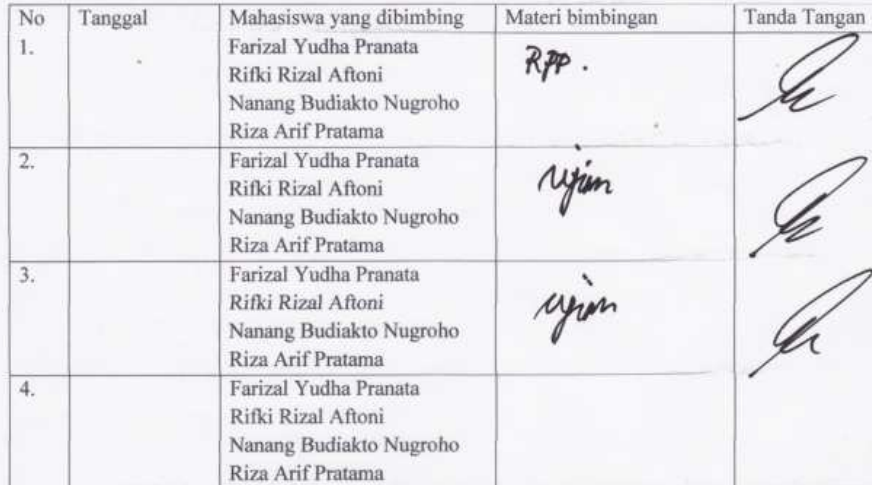 No Tanggal Mahasiswa yang dibimbing Materi bimbingan Tanda Tangan
1. Farizal Yudha Pranata RPP.
Rifki Rizal Aftoni
Nanang Budiakto Nugroho
Riza Arif Pratama
2. Farizal Yudha Pranata ujian
Rifki Rizal Aftoni
Nanang Budiakto Nugroho
Riza Arif Pratama
3. Farizal Yudha Pranata
Rifki Rizal Aftoni ujian
Nanang Budiakto Nugroho
Riza Arif Pratama
4. Farizal Yudha Pranata
Rifki Rizal Aftoni
Nanang Budiakto Nugroho
Riza Arif Pratama